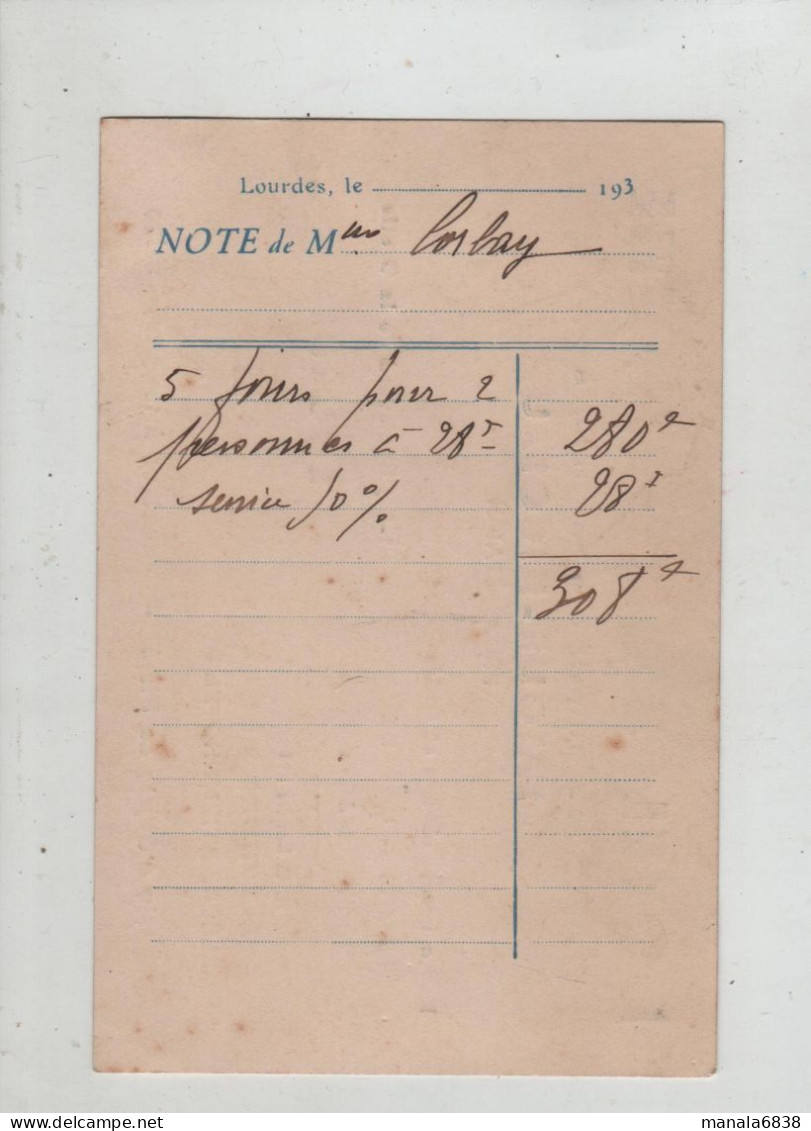 Lourdes, le 193
NOTE de M Corbay
5 jours pour 2
personnes à 28f 280f
service 10% 28f
308f
manala6838